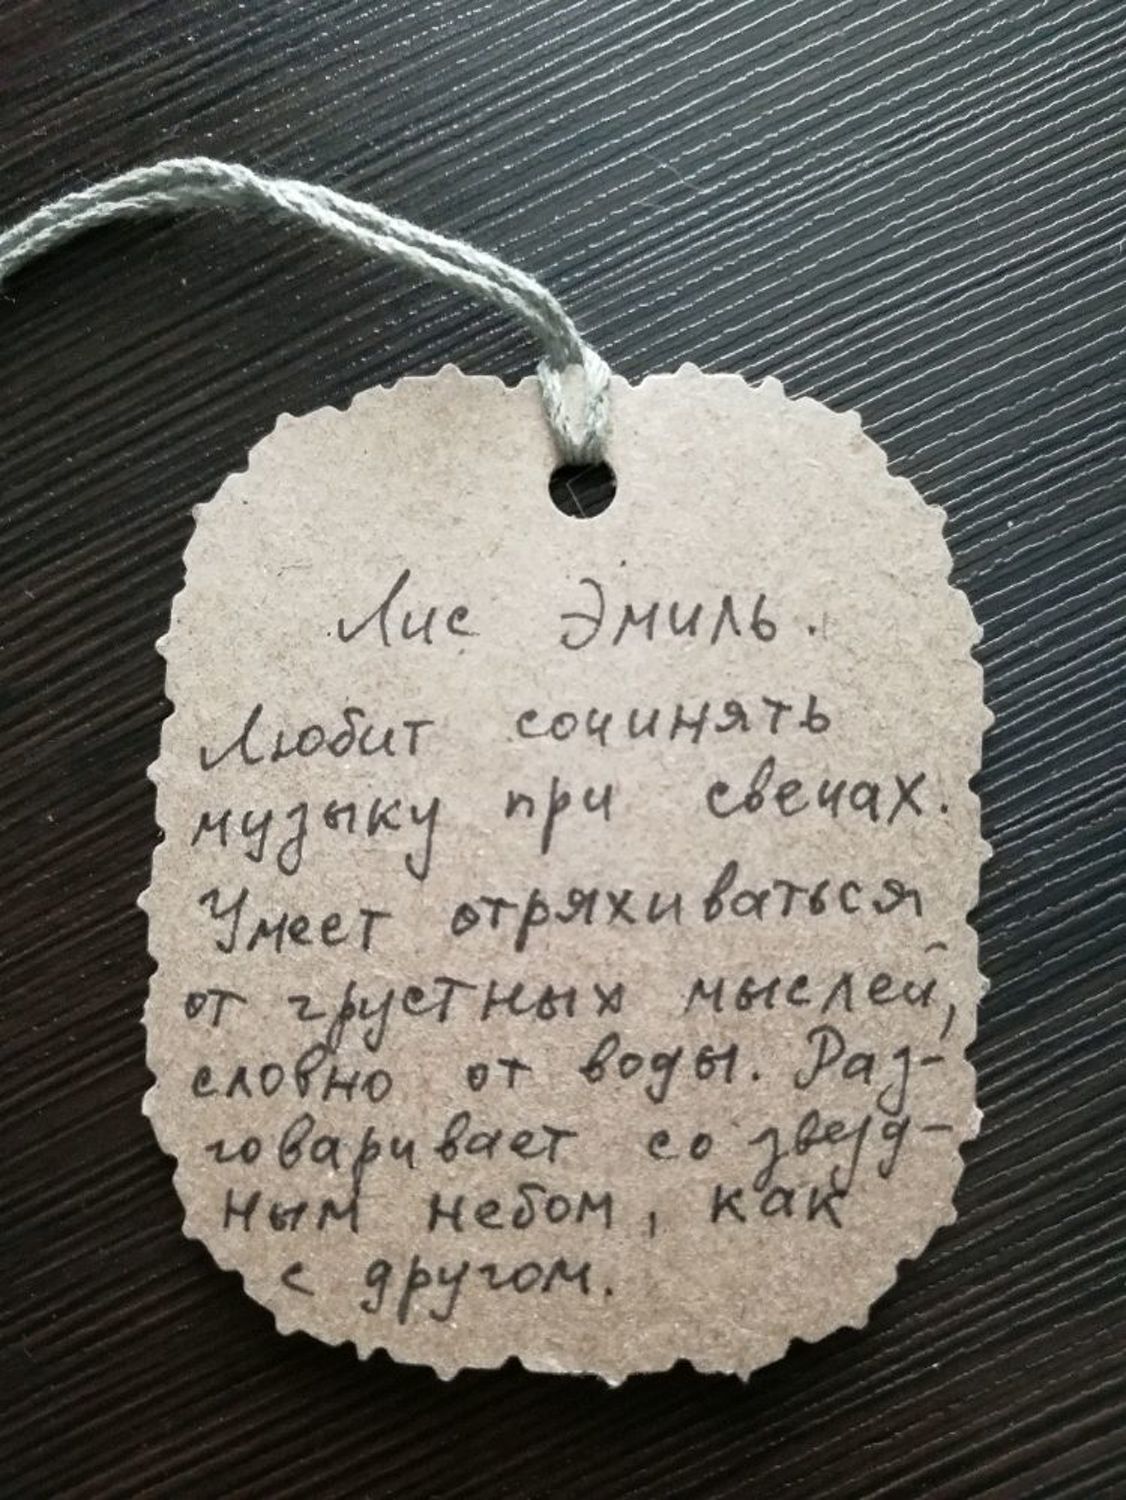 Лис Эмиль.
Любит сочинять
музыку при свечах.
Умеет отряхиваться
от грустных мыслей,
словно от воды. Раз-
говаривает со звезд-
ным небом, как
с другом.